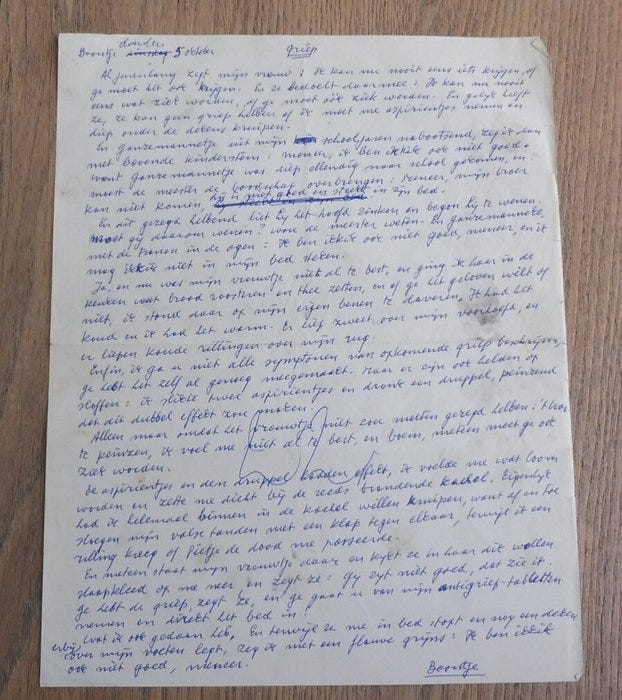 donder
Boontje dinsdag 5 oktober griep
Al jarenlang zegt mijn vrouw: Ik kan nu nooit eens iets krijgen, of
ge moet het ook krijgen. En ze bedoelt daarmee: Ik kan nu nooit
eens wat ziek worden, of ge moet óók ziek worden. En gelijk heeft
ze, ze kan geen griep hebben of ik moet me aspirientjes nemen en
diep onder de dekens kruipen.
En ganzemannetje uit mijn schooljaren nabootsend, zeg ik dan
met bevende kinderstem: meneer, ik ben ikkik ook niet goed.
want ganzemannetje was diep ellendig naar school gekomen, en
moest de meester de boodschap overbrengen: meneer, mijn broer
kan niet komen, hij is niet goed en steekt in zijn bed.
En dit gezegd hebbend liet hij het hoofd zinken en begon hij te wenen.
Moet gij daarom wenen? wou de meester weten. En ganzemanneke,
met de tranen in de ogen: Ik ben ikkik ook niet goed, meneer, en ik
mag ikkik niet in mijn bed steken.
Ja, en nu was mijn vrouwtje niet al te best, en ging ik haar in de
keuken wat brood roosteren en thee zetten, en of ge het geloven wilt of
niet, ik stond daar op mijn eigen benen te daveren. Ik had het
koud en ik had het warm. Er liep zweet over mijn voorhoofd, en
er liepen koude rillingen over mijn rug.
Enfin, ik ga u niet alle symptomen van opkomende griep beschrijven,
ge hebt het zelf al genoeg meegemaakt. Maar er zijn ook helden op
sloffen: ik slikte twee aspirientjes en dronk een druppel, peinzend
dat dit dubbel effekt zou maken.
Alleen maar omdat het vrouwtje niet zou moeten gezegd hebben: 't was
te peinzen, ik voel me niet al te best, en boem, meteen moet ge ook
ziek worden.
De aspirientjes en den druppel hadden effekt, ik voelde me wat loom
worden en zette me dicht bij de reeds brandende kachel. Eigenlijk
had ik helemaal binnen in de kachel willen kruipen, want af en toe
sloegen mijn valse tanden met een klap tegen elkaar, terwijl ik een
rilling kreeg of Pietje de dood me passeerde.
En meteen staat mijn vrouwtje daar en kijkt ze in haar dik wollen
slaapkleed op me neer en zegt ze: Gij zijt niet goed, dat zie ik.
Ge hebt de griep, zegt ze, en ge gaat u van mijn antigriep-tabletten
nemen en direkt het bed in!
Wat ik ook gedaan heb, En terwijl ze me in bed stopt en nog een deken
erbij over mijn voeten legt, zeg ik met een flauwe grijns: Ik ben ikkik
ook niet goed, meneer.
Boontje